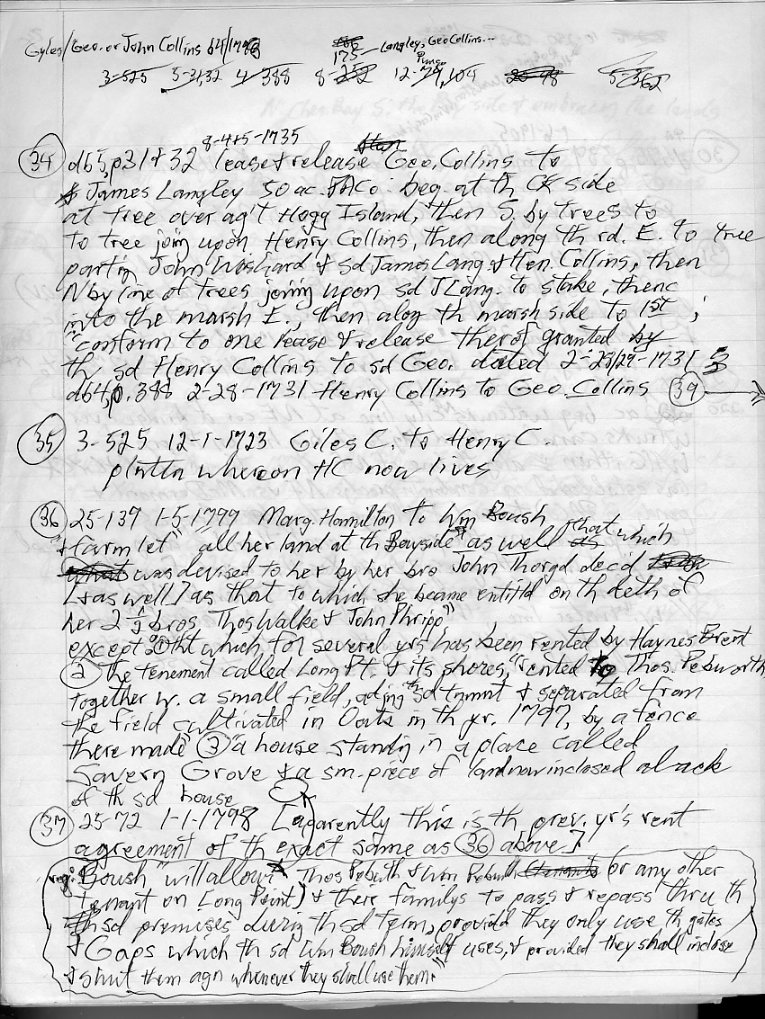 Gyles/Geo. or John Collins 64/1743
175 Langley, Geo Collins...
Pungo
3-525 5-31,32 4-388 8-252 12-79,104 5-362
8-4+5-1735
34 db5,p31+32 lease & release Geo. Collins to
& James Langley 50 ac. PACo. beg. at th CK side
at tree over ag't Hogg Island, then S. by trees to
to tree joing upon Henry Collins, then along th rd. E. to tree
partin John Woshard & sd James Lang. & Hen. Collins, then
N by line of trees joining upon sd J Lang. to stake, thenc
into the marsh E., then alog th marsh side to 1st ;
"conform to one lease & release therof granted by
th sd Henry Collins to sd Geo. dated 2-28/29-1731
db4,p.388 2-28-1731 Henry Collins to Geo. Collins 39 →
35 3-525 12-1-1723 Giles C. to Henry C
plntn wheron HC now lives
36 25-139 1-5-1799 Marg. Hamilton to Wm Boush
"& farm let" all her land at th Bayside "as well that which
was devised to her by her bro John Thorgd. dec'd
[& as well] as that to which she became entitld on th deth of
her 2 ½ bros Thos Walke & John Phripp"
except 1 tht which for several yrs has been rented by Haynes Brent
2 the tenement called Long Pt. & its shores, "rented to Thos. Pebworth
together w. a small field, adjing th sd tnmnt & separated from
the field cultivated in Oats in th yr. 1797, by a fence
there made" 3 "a house standg in a place called
Savern Grove & a sm. piece of land now inclosed aback
of th sd house
37 25-72 1-1-1798 [apparently this is th prev. yr's rent
agreement of th exact same as 36 above]
Boush "will allow" Thos Pebwth & Wm Pebwth (or any other
tenant on Long Point) & there familys to pass & repass thru th
th sd premises durig th sd term, provided they only use th gates
& Gaps which th sd Wm Boush himself uses, & provided they shall inclose
& shut them agn whenever they shall use them."